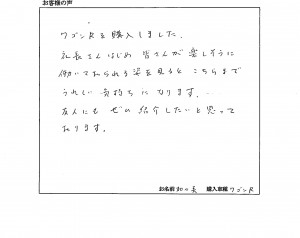 お客様の声
ワゴンRを購入しました。
社長さんはじめ 皆さんが楽しそうに
働いておられる姿を見ると こちらまで
うれしい気持ちになります。
友人にも ぜひ紹介したいと思って
おります。
お名前 購入車種 ワゴンR